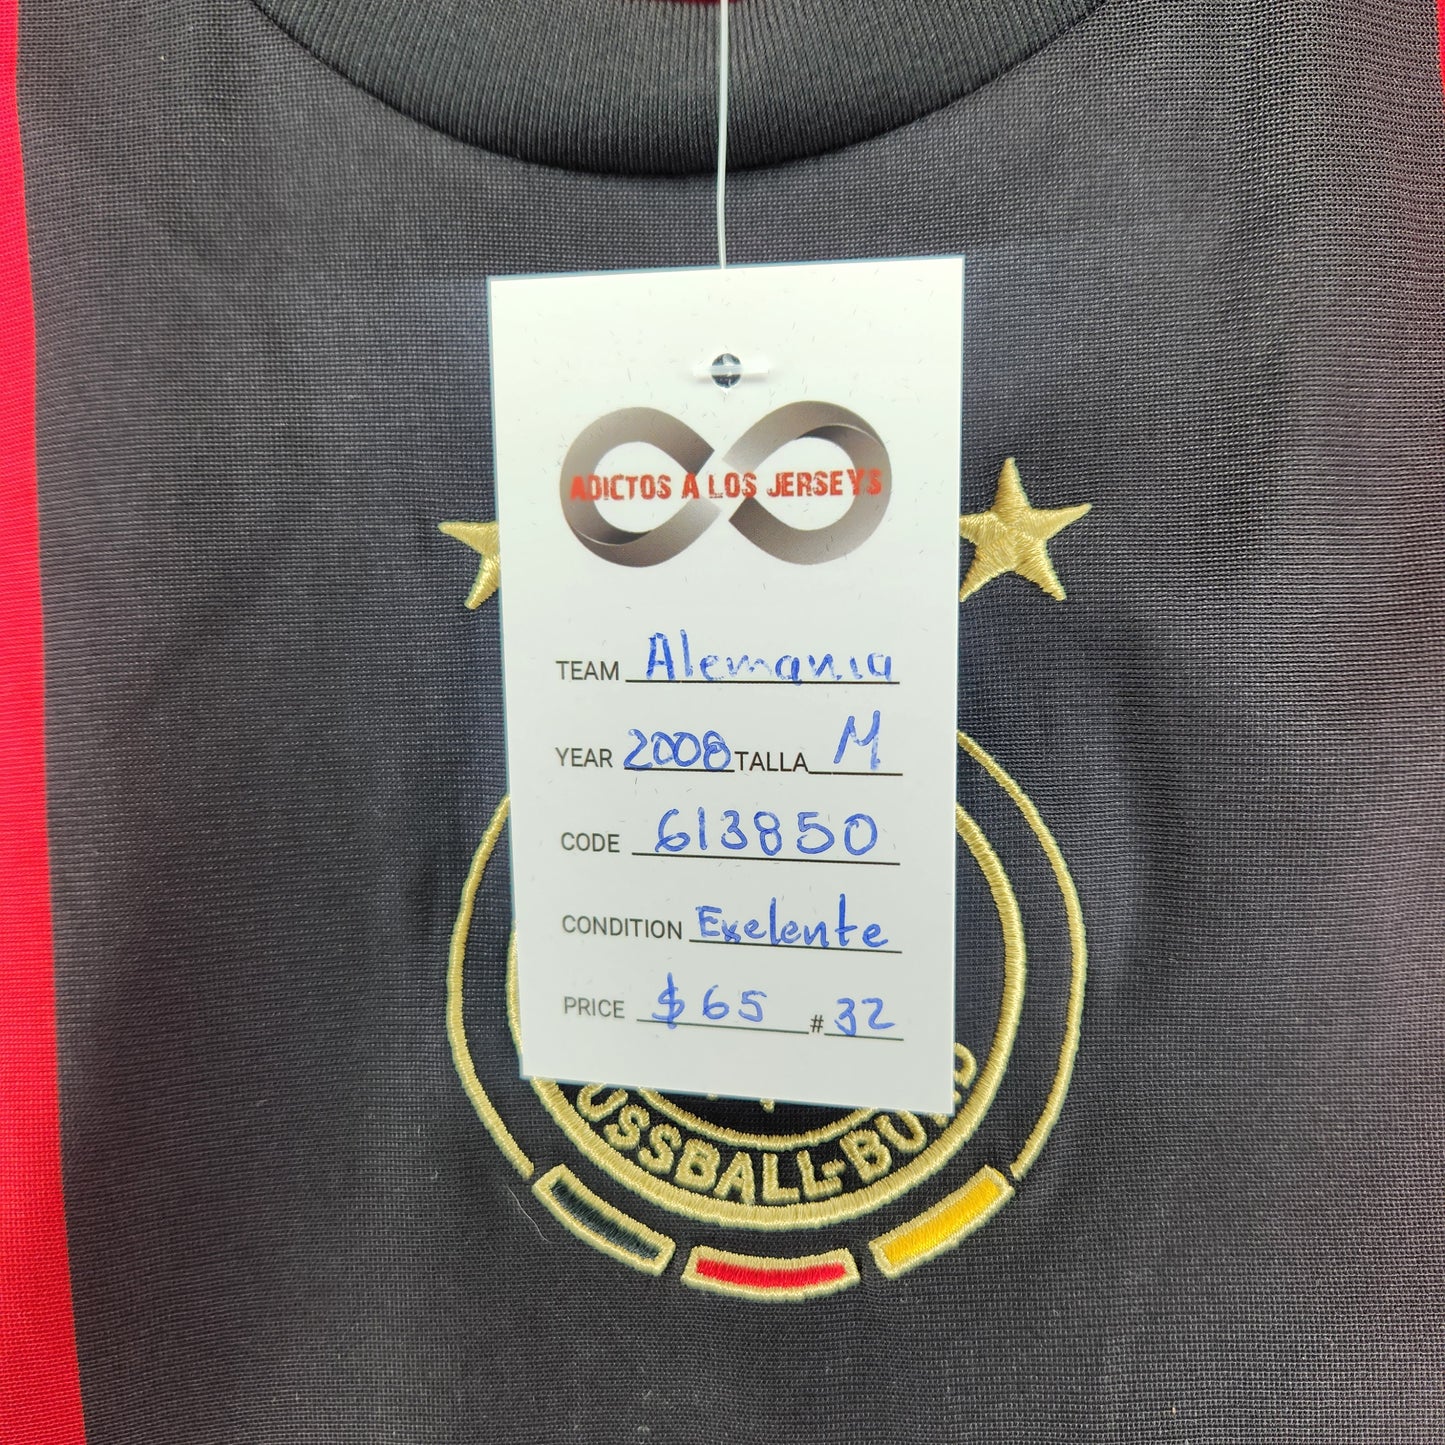 ADICTOS A LOS JERSEYS
TEAM Alemania
YEAR 2008 TALLA M
CODE 613850
CONDITION Exelente
PRICE $65 #32
USSBALL-BU